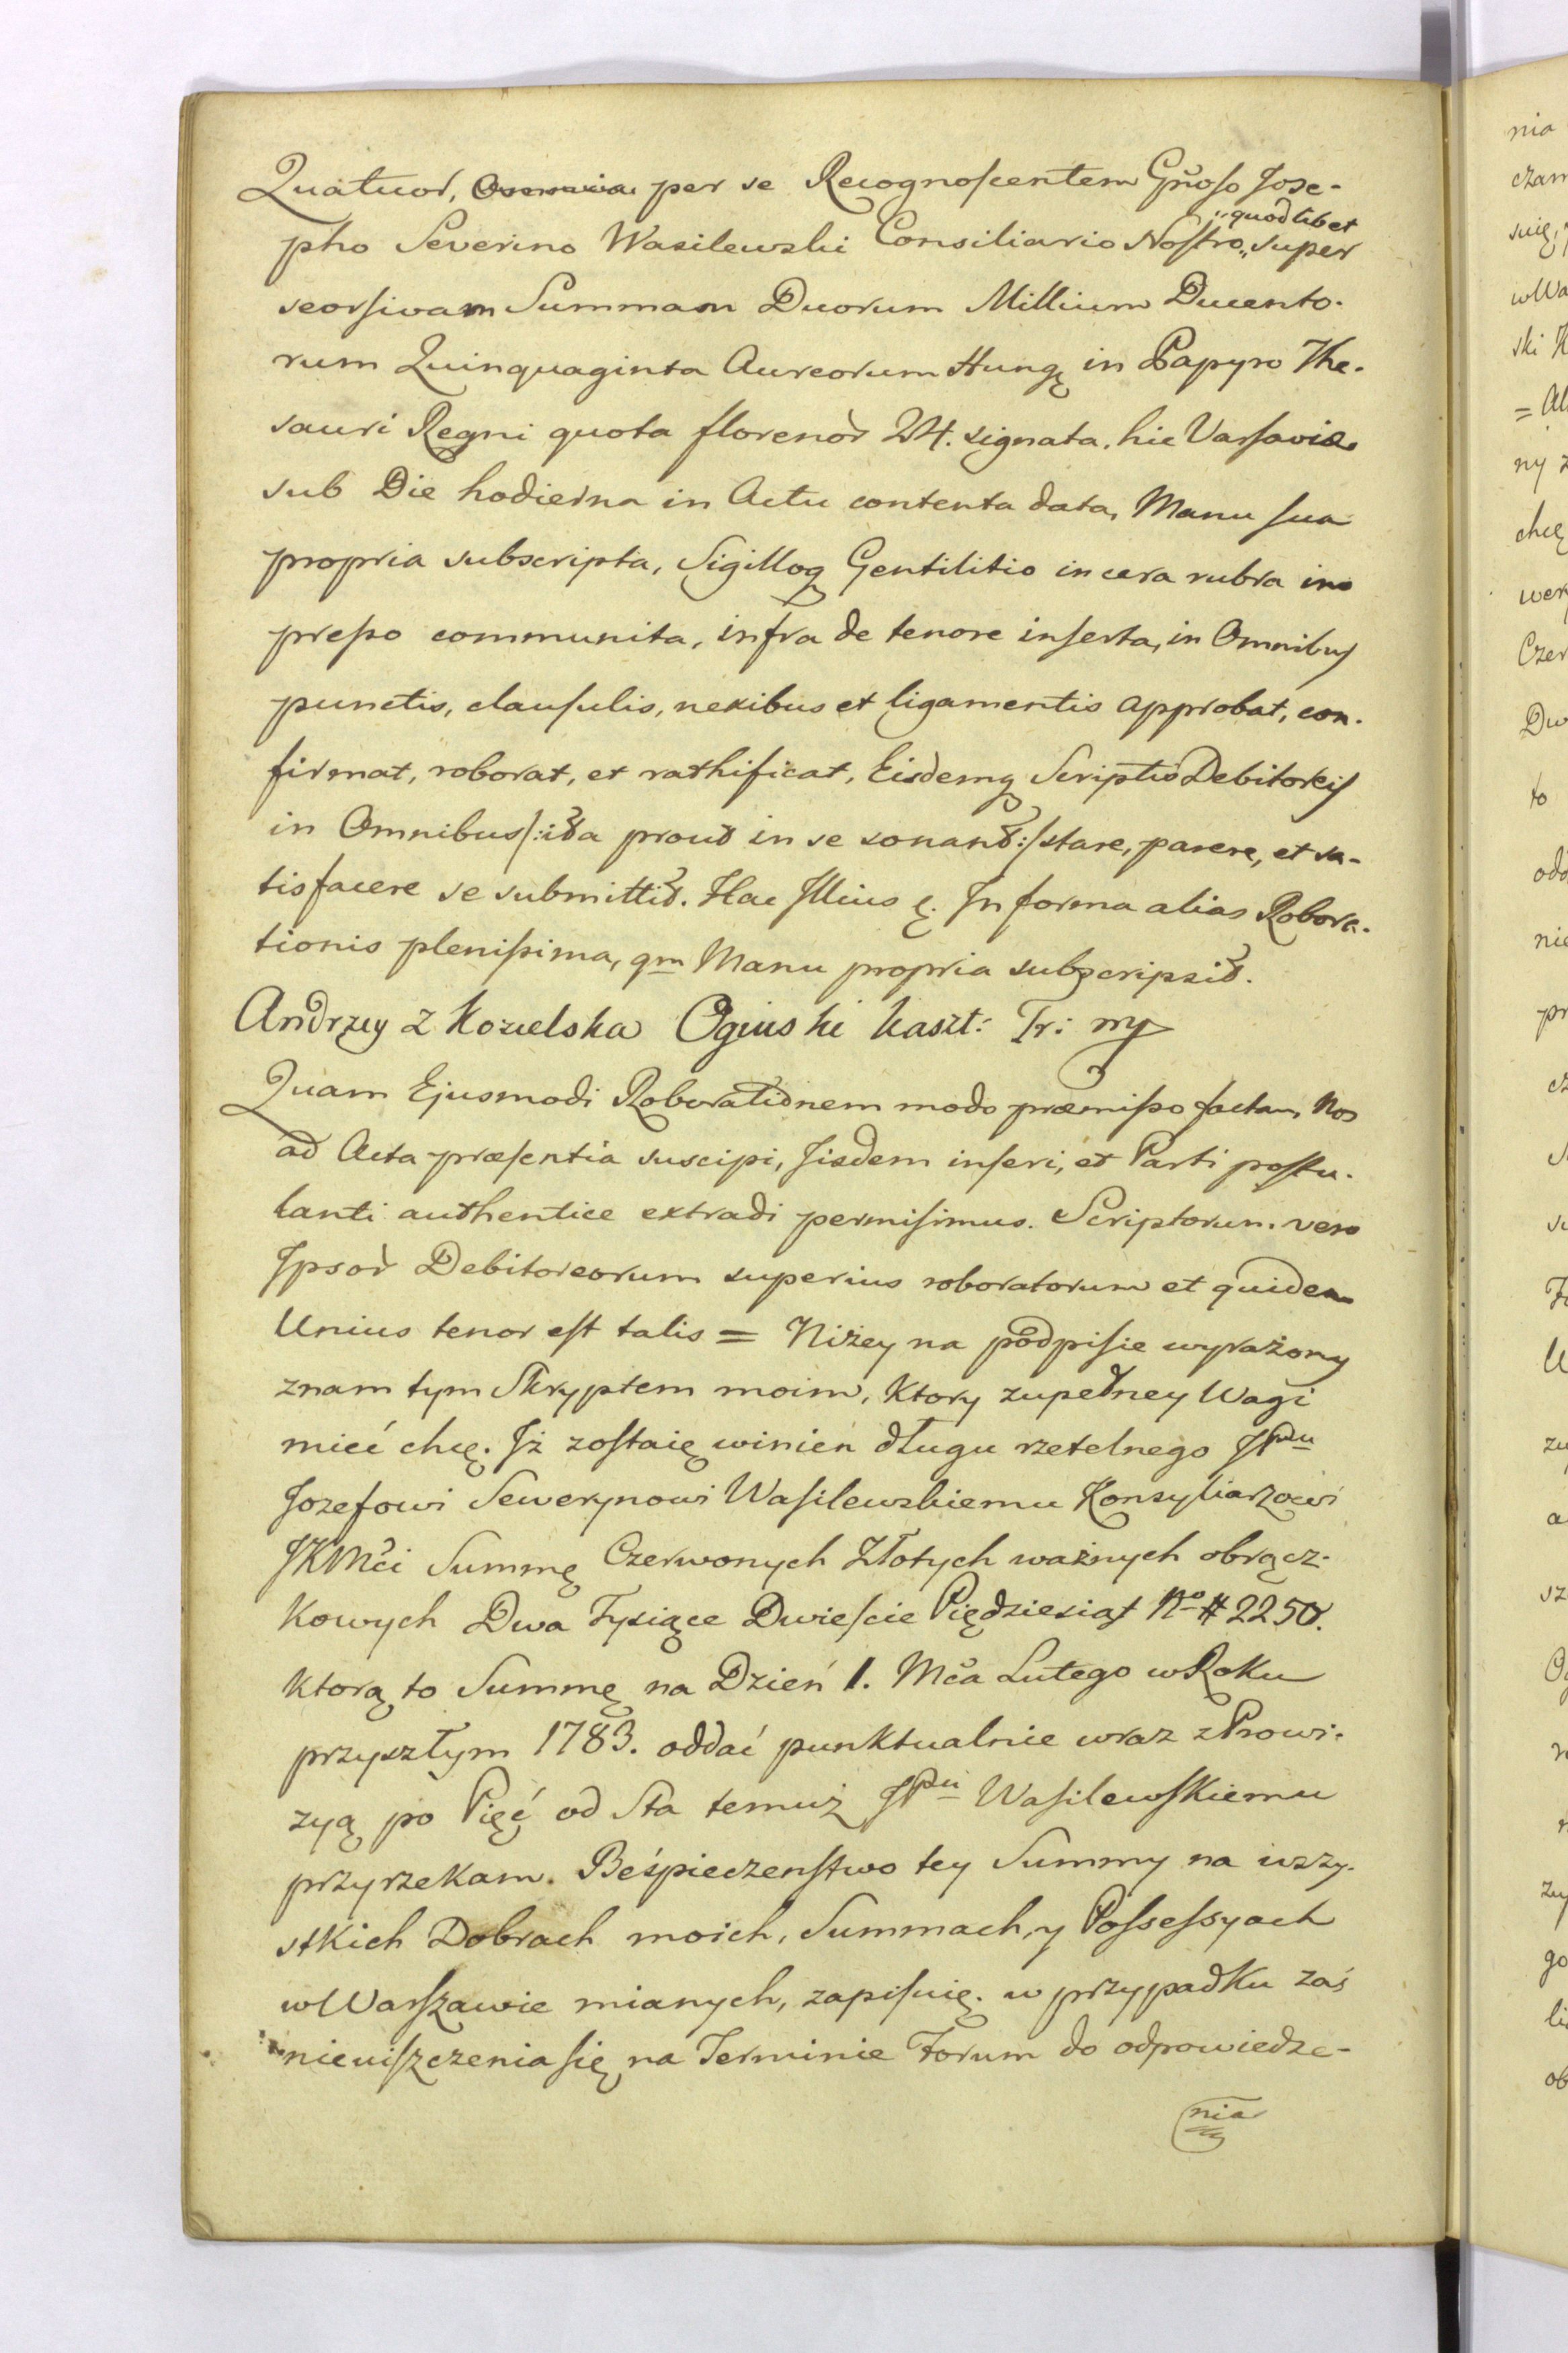 Quatuor, per se Recognoscentem Gn̄oso Jose-
pho Severino Wasilewski Consiliario Nostro „quodlibet„ super
seorsivam Summam Duorum Millium Ducento-
rum Quinquaginta Aureorum Hungę in Papyro The-
sauri Regni quota florenor̀ 24. signata, hic Varsaviæ
sub Die hodierna in Actu contenta data, Manu sua
propria subscripta, Sigilloq Gentilitio in cera rubra im
presso communita, infra de tenore inserta, in Omnibus
punctis, clausulis, nexibus et ligamentis approbat, con-
firmat, roborat, et rathificat, Eisdemq Scriptis Debitoreis
in Omnibus /:ita prout in se sonant:/ stare, parere, et sa-
tisfacere se submittit. Hac Illius ę. In forma alias Robora-
tionis plenissima, qm Manu propria subscripsit.
Andrzey z Kozielska Oginski Kaszt: Tr: mp
Quam Ejusmodi Roborationem modo præmisso factam, Nos
ad Acta præsentia suscipi, Jisdem inseri, et Parti postu-
lanti authentice extradi permisimus. Scriptorum vero
Ipsor̀ Debitoreorum superius roboratorum et quidem
Unius tenor est talis = Niżey na podpisie wyrażony
znam tym Skryptem moim, Ktory zupełney Wagi
mieć chcę. Jż zostaię winien długu rzetelnego JPanu
Jozefowi Sewerynowi Wasilewskiemu Konsyliarzowi
JKMći Summę Czerwonych Złotych ważnych obrącz-
Kowych Dwa Tysiące Dwieście Pięćdziesiąt No # 2250.
Ktorą to Summę na Dzień 1. Mća Lutego w Roku
przyszłym 1783. oddać punktualnie wraz z Prowi-
zyą po Pięć od Sta temuż JPanu Wasilewskiemu
przyrzekam. Beśpieczenstwo tey Summy na wszy-
stkich Dobrach moich, Summach, y Possessyach
w Warszawie mianych, zapisuię. w przypadku zaś
nieuiszczenia się na Terminie Forum do odpowiedze-
nia